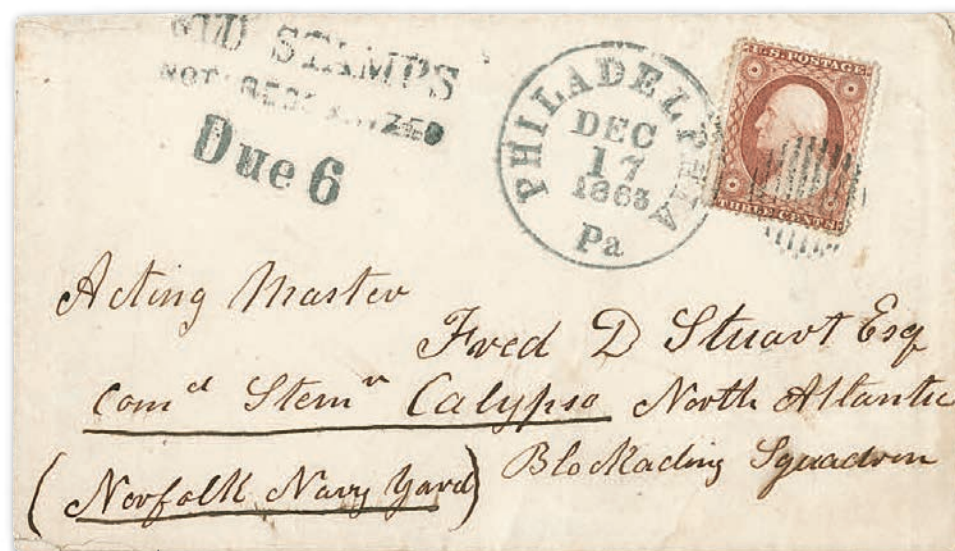 OLD STAMPS
NOT RECOGNIZED
Due 6
PHILADELPHIA
DEC
17
1863
Pa
U.S. POSTAGE
THREE CENTS
Acting Master
Fred D Stuart Esq
Comd Stemr Calypso North Atlantic
Blockading Squadron
(Norfolk Navy Yard)